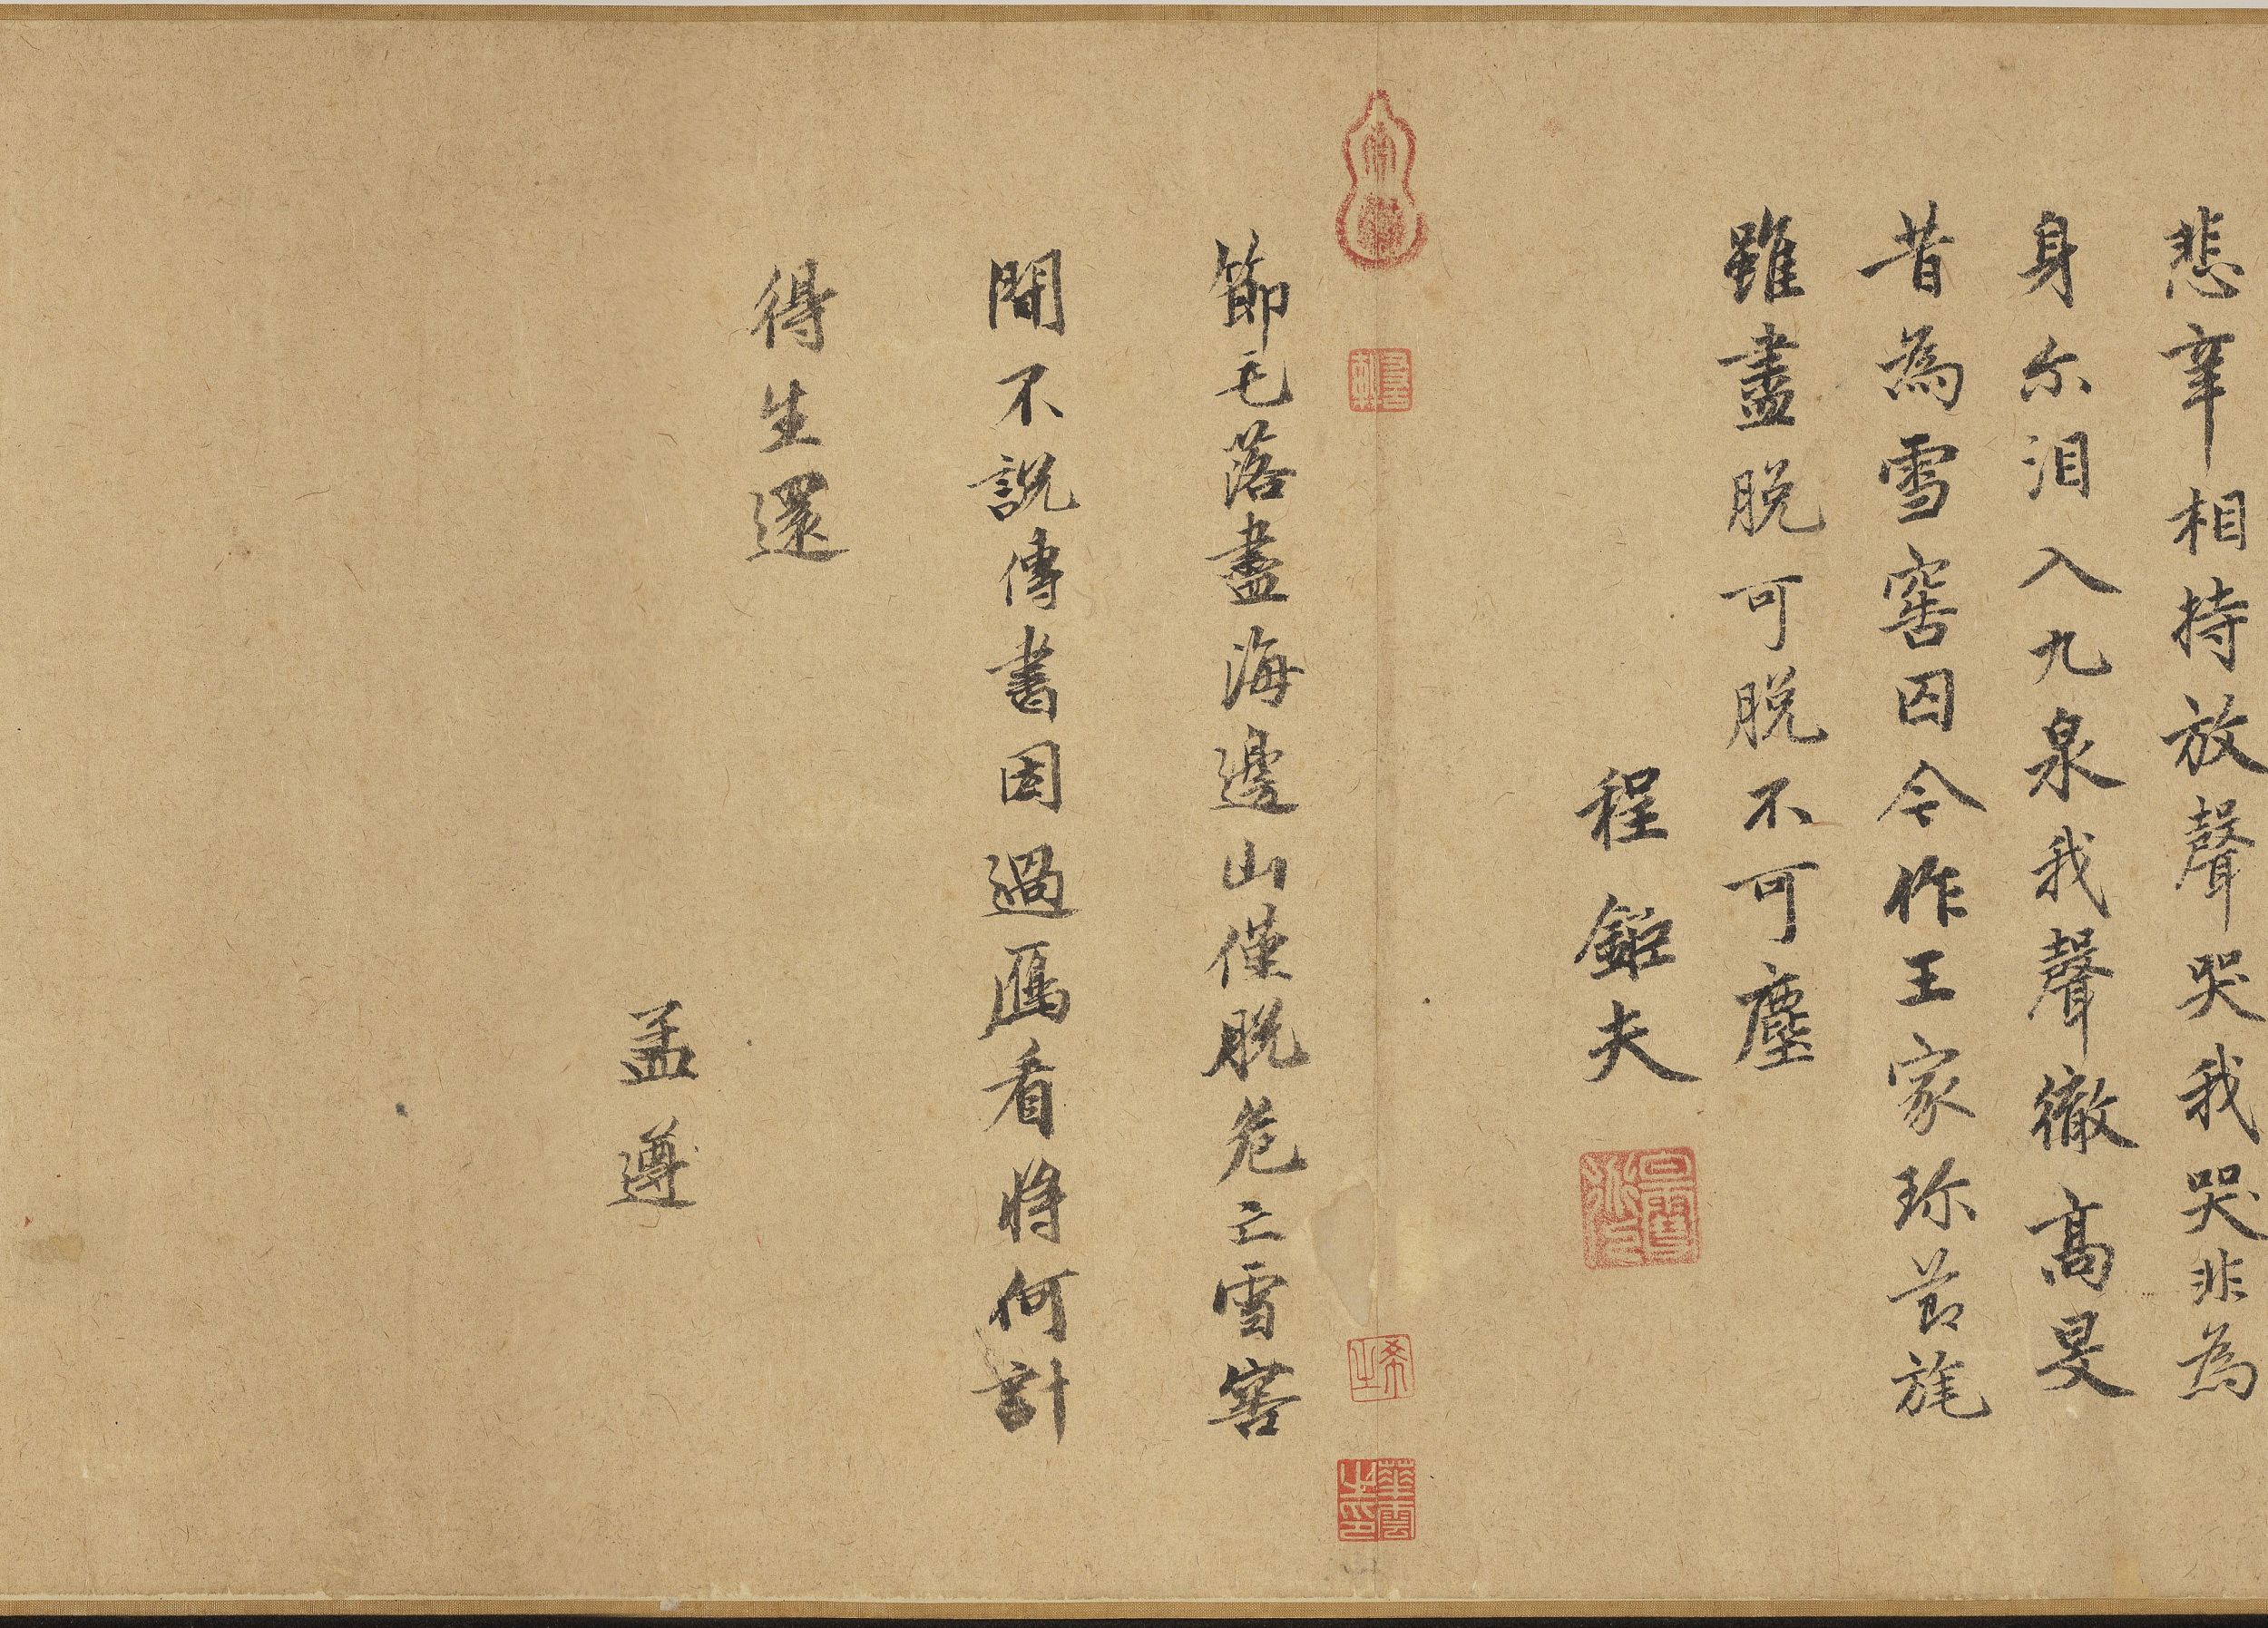 悲辛相持放聲哭我哭非為
身尔泪入九泉我聲徹髙旻
昔為雪窖囚今作王家珎莭旄
雖盡脱可脱不可塵
程鉅夫
節毛落盡海邊山僅脱危亡雪窖
間不說傳書因過鴈看將何計
得生還
孟遵